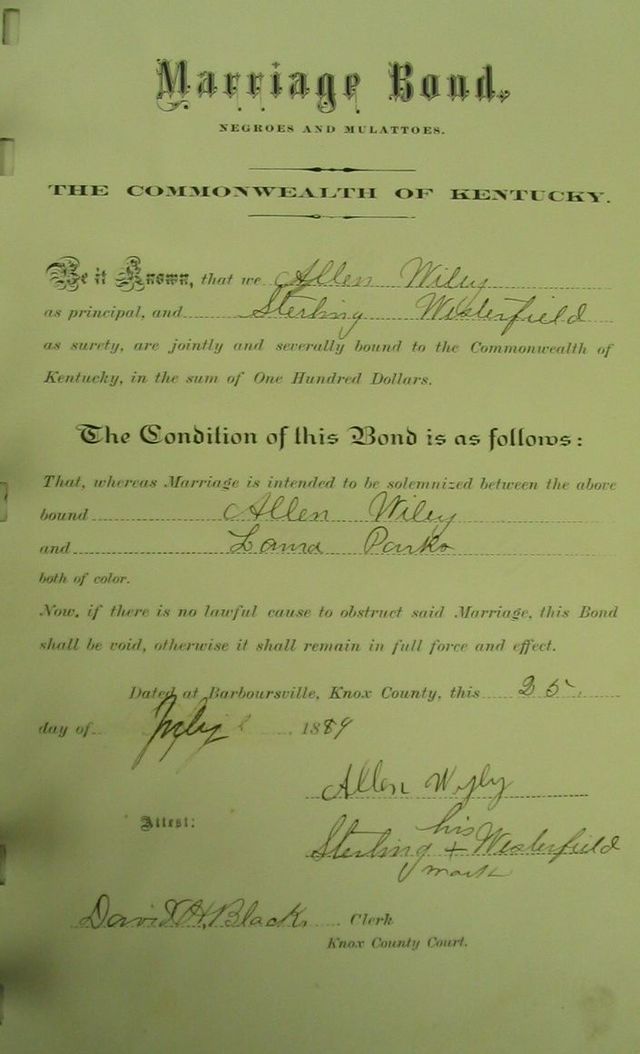 Marriage Bond.
NEGROES AND MULATTOES.
THE COMMONWEALTH OF KENTUCKY.
Be it Known, that we Allen Wiley
as principal, and Sterling Westerfield
as surety, are jointly and severally bound to the Commonwealth of
Kentucky, in the sum of One Hundred Dollars.
The Condition of this Bond is as follows:
That, whereas Marriage is intended to be solemnized between the above
bound Allen Wiley
and Laura Parks
both of color.
Now, if there is no lawful cause to obstruct said Marriage, this Bond
shall be void, otherwise it shall remain in full force and effect.
Dated at Barboursville, Knox County, this 25.
day of July 1889
Allen Wyly
Attest:
his
Sterling + Westerfield
mark
David H. Black Clerk
Knox County Court.